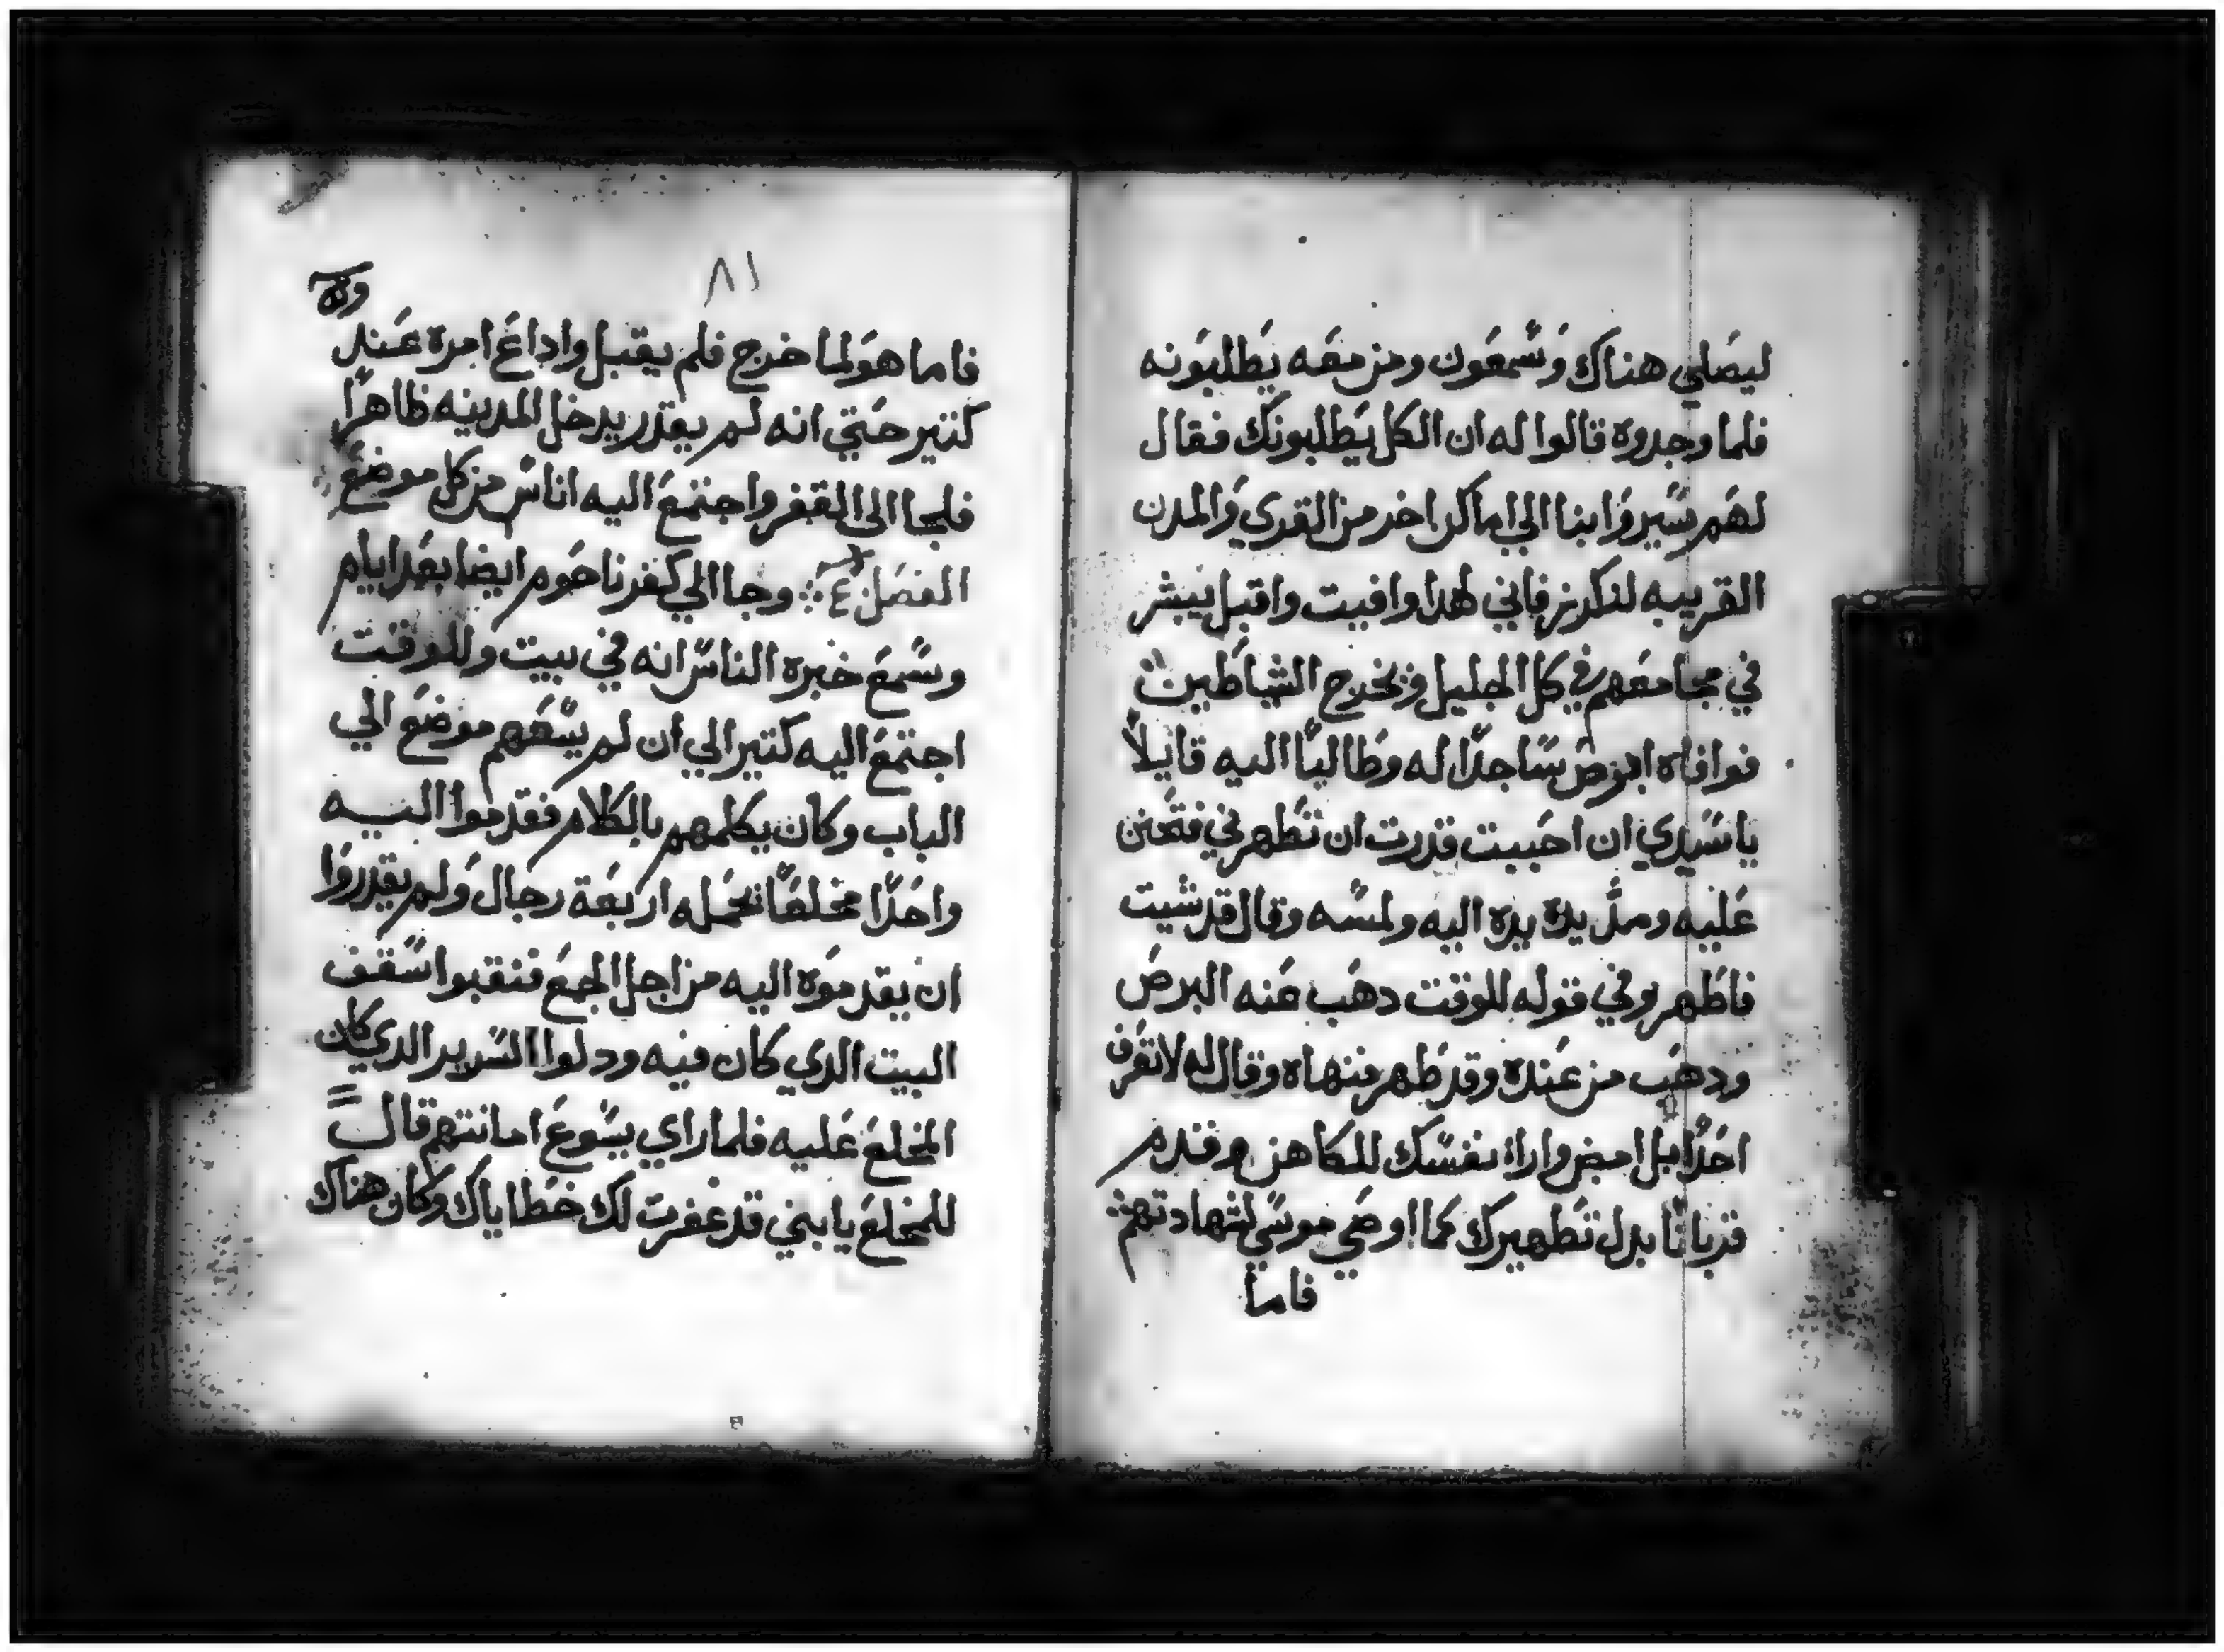 ليصلي هناك وشمعون ومن معه يطلبونه
فلما وجدوه قالوا له ان الكل يطلبونك فقال
لهم سيروا بنا الي اماكن اخر من القري والمدن
القريبه لنكرز فاني لهدا وافيت واقبل يبشر
في مجامعهم في كل الجليل ويخرج الشياطين
فوافاه ابرص ساجدا له وطالبا اليه قايلا
يا سيدي ان احببت قدرت ان تطهرني فتحنن
عليه ومد يده اليه ولمسه وقال قد شيت
فاطهر وفي قوله للوقت دهب عنه البرص
ودهب من عنده وقد طهر فنهاه وقال له لا تعرف
احدا بل امض واراه نفسك للكاهن وقدم
قربانا بدل تطهيرك كما اوصي موسي لشهادتهم
فاما
٨١
فاما هو لما خرج فلم يقبل واداع امره عند
كتير حتي انه لم يقدر يدخل المدينه ظاهرا
فلجا الى القفر واجتمع اليه اناس من كل موضع
الفصل ٤ وجا الي كفرناحوم ايضا بعد ايام
وسمع خبره الناس انه في بيت وللوقت
اجتمع اليه كتير الي ان لم يسعهم موضع الي
الباب وكان يكلمهم بالكلام فقدموا اليه
واحدا مخلعا تحمله اربعة رجال ولم يقدروا
ان يقدموه اليه من اجل الجمع فنقبوا سقف
البيت الدي كان فيه ودلوا السرير الدي كان
المخلع عليه فلما راي يسوع امانتهم قال
للمخلع يا بني قد غفرت لك خطاياك وكان هناك